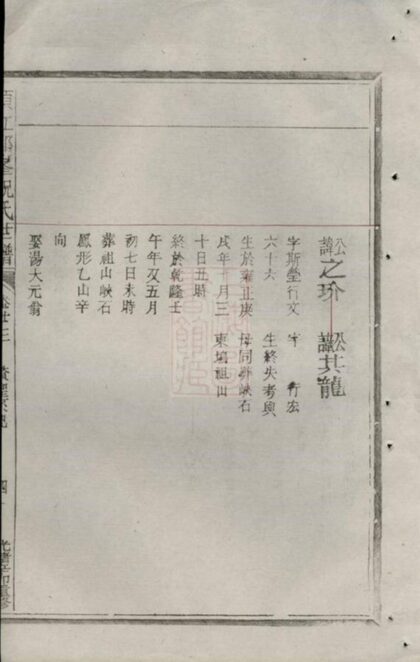 公諱之玠
字斯瑩行文
六十六
生於雍正庚
戌年 月三
十日丑時
終於乾隆壬
午年又五月
初七日未時
葬祖山峽石
鳳形乙山辛
向
娶湯大元翁
公諱其龍
字 行宏
生終失考與
母同 峽石
東塢祖山
須江郎峯祝氏世譜